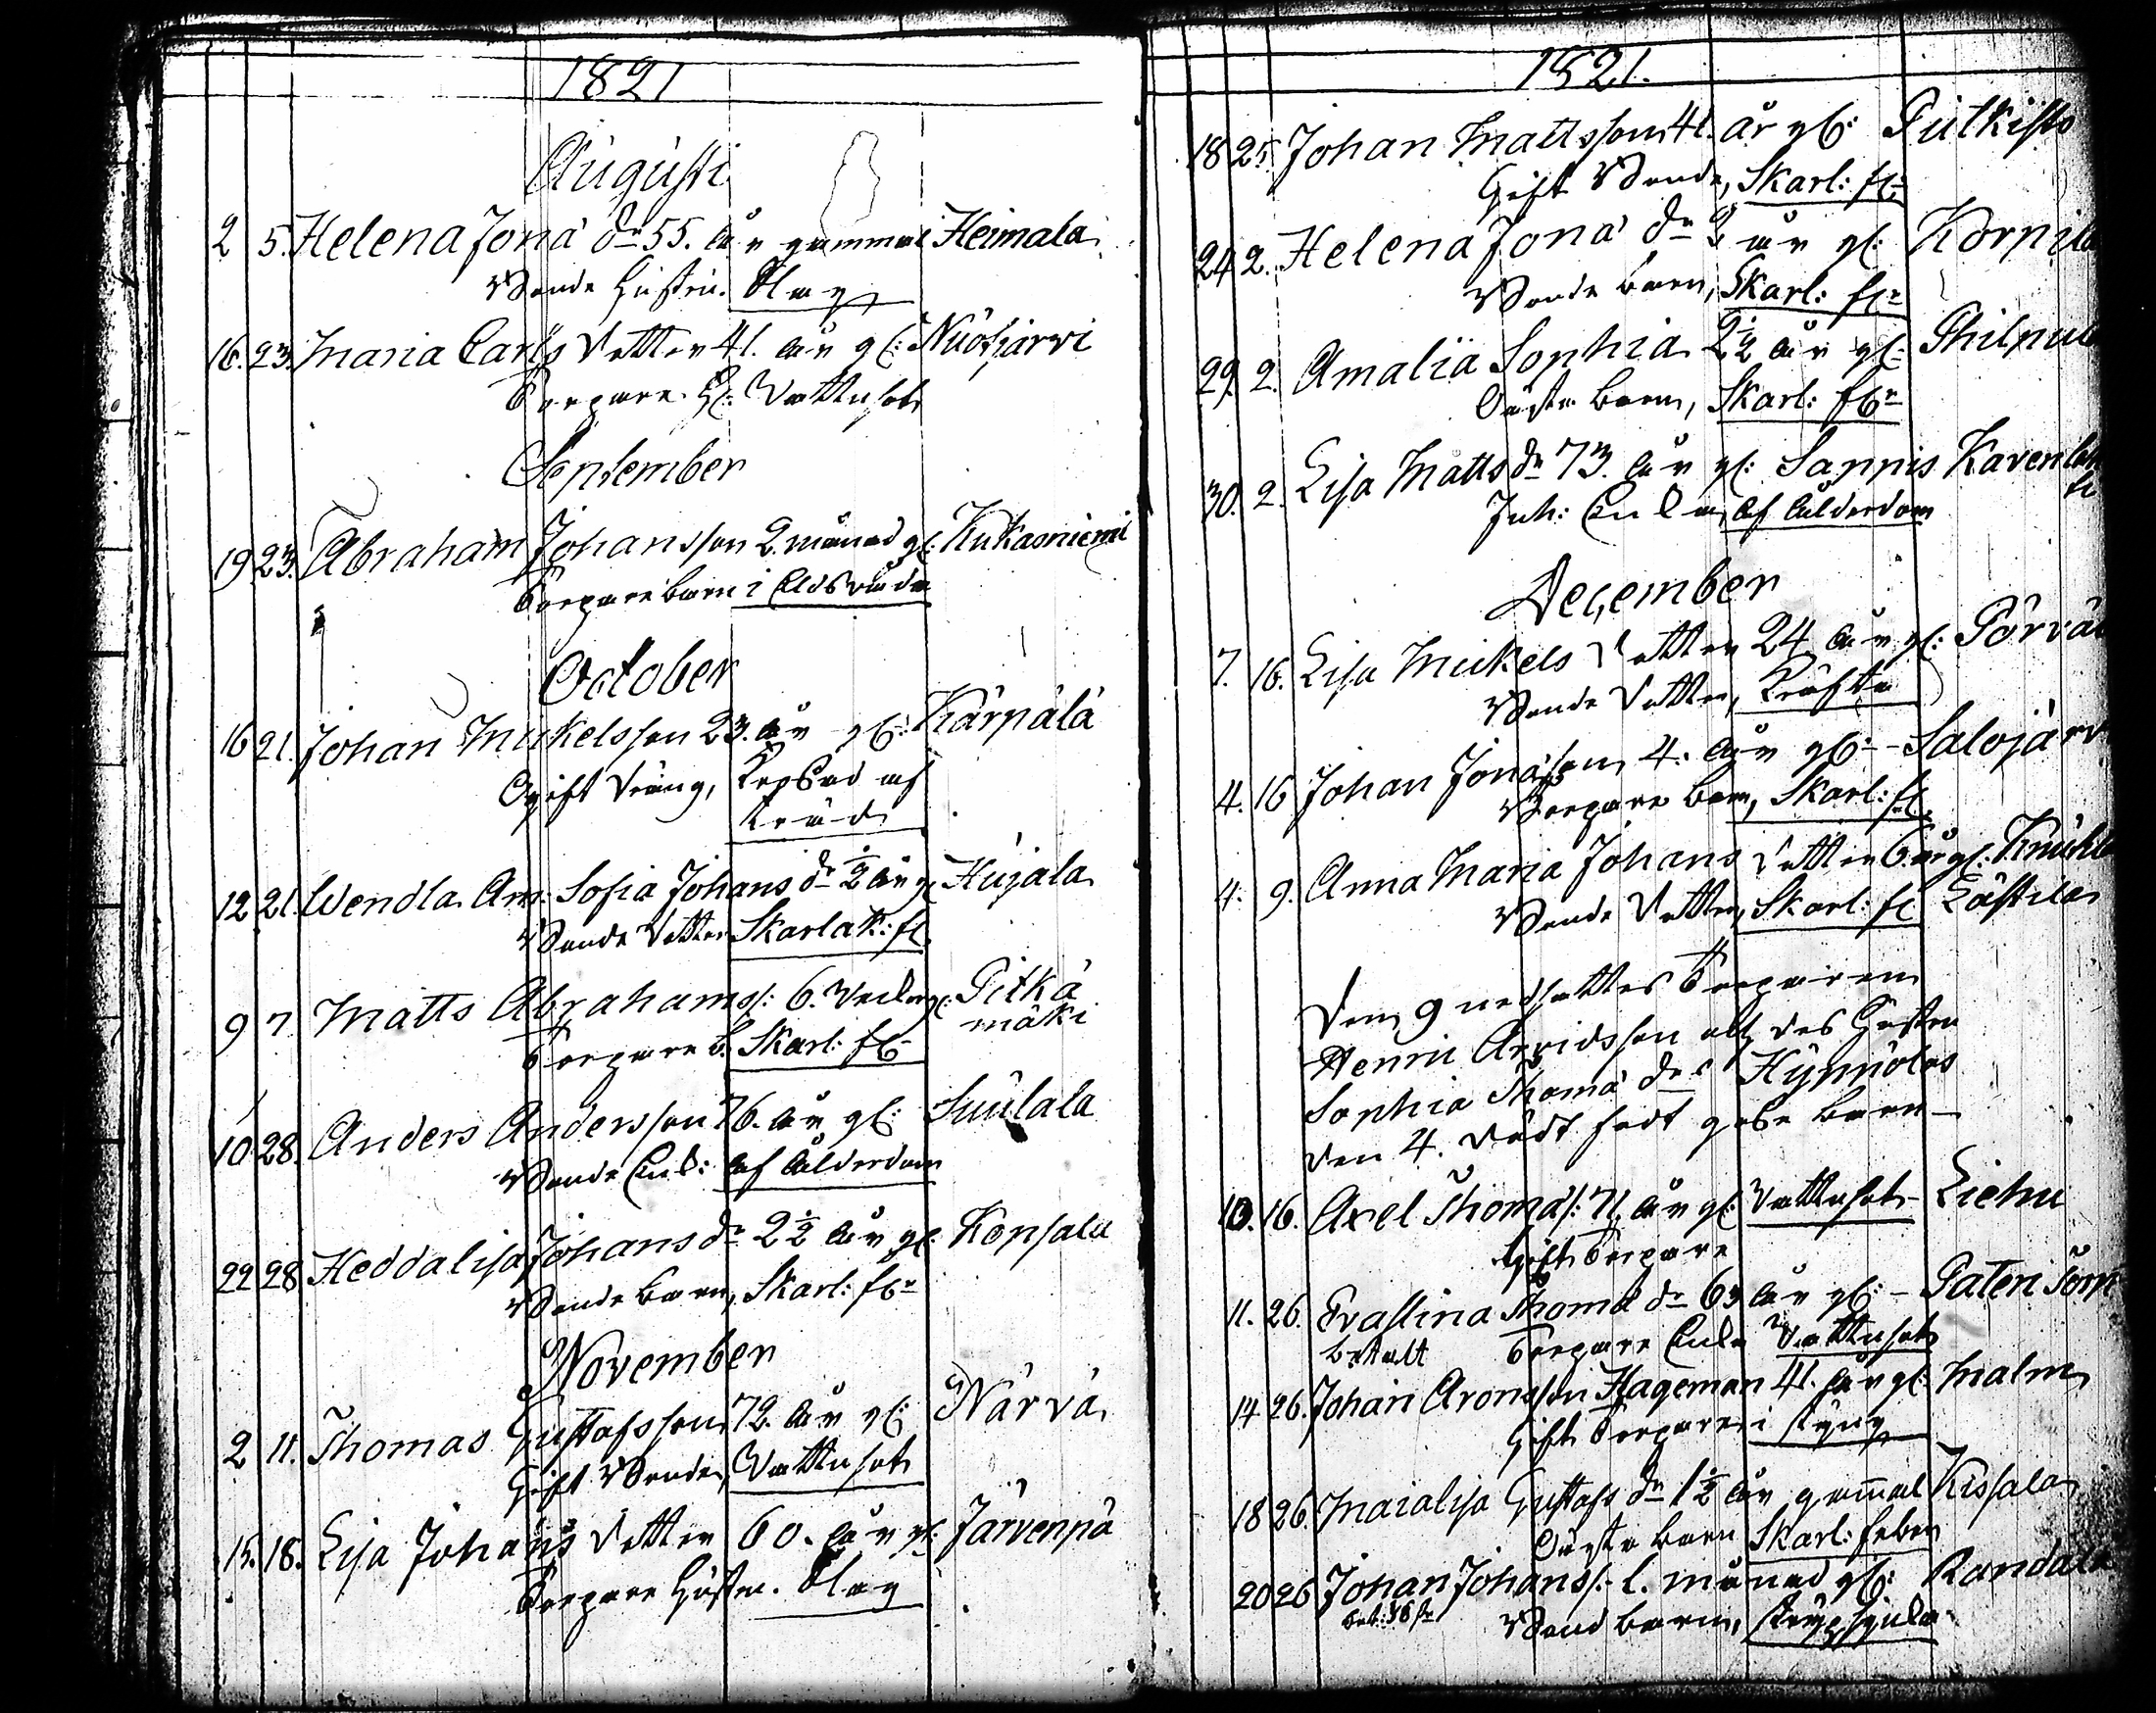 1821
Augusti
2 5. Helena Jona dr 55. år gammal Heimala
Bonde Hustru. Slag
16. 23. Maria Carls dotter 41. år gl: Nuojärvi
Torpare H: Vattusot
September
19 23. Abraham Johansson 2 månad gl: Kukasniemi
Torpare barn i Eldsvåda
October
16 21. Johan Mikelsson 23. år gl: Kärpälä
Ogift dräng,
12 21. Wendla An: Sofia Johans dr ½ år gl Kujala
Bonde dotter Skarlak: fl
9 7 Matts Abrahams: 6. veckor gl: Pitkä
mäki
Torpare b. Skarl: fbr
10 28. Anders Andersson 76. år gl: Suulala
Bonde Enkl: af ålderdom
22 28 Heddalisa Johans dr 2½ år gl. Konsala
Bonde barn, Skarl: fbr
November
2 11. Thomas Gustafsson 72. år gl: Närvä
Gift Bonde, Vattusot
15. 18. Lisa Johans dotter 60. år gl: Järvenpä
Torpare Hustru. Slag
1821.
18 25. Johan Mattsson 41. år gl: Pitkisto
Gift Bonde, Skarl: fl:
24 2. Helena Jona dr 2 år gl: Körpila
Bonde barn, Skarl: fbr
29. 2. Amalia Sophia 2½ år gl:
barn, Skarl: fbr
30. 2. Lisa Matts dr 73. år gl: Sannis Kavenlah
ti
Inh: Enka, af ålderdom
December
7. 16. Lisa Mickels dotter 24 år gl: Pörvä
Bonde dotter, Kräfta
4. 16 Johan Jonasson 4. år gl: - Salojärv
Torpare barn, Skarl: fl
4. 9. Anna Maria Johans dotter 6 år gl:
Bonde dotter, Skarl: fl Eästilä
Den 9 nedsattes Torparen
Henric Arvidsson och des Hustru
Sophia Thoma drs Hynnölas
den 4. dödt född gosse barn
10. 16. Axel Thomas: 71 år gl: Vattusot Liehu
Gift Torpare
11. 26. Evastina Thoma dr 63 år gl: - Paten
betalt Torpare Enka Vattusot
14 26. Johan Aronsson Hageman 41. år gl: Malm
Gift Torpare i styng
18 26. Maialisa Gustafs dr 1½ år gammal Kissala
barn Skarl: feber
20 26 Johan Johans: 1. månad gl: Randala
Bond barn, strypsjuka